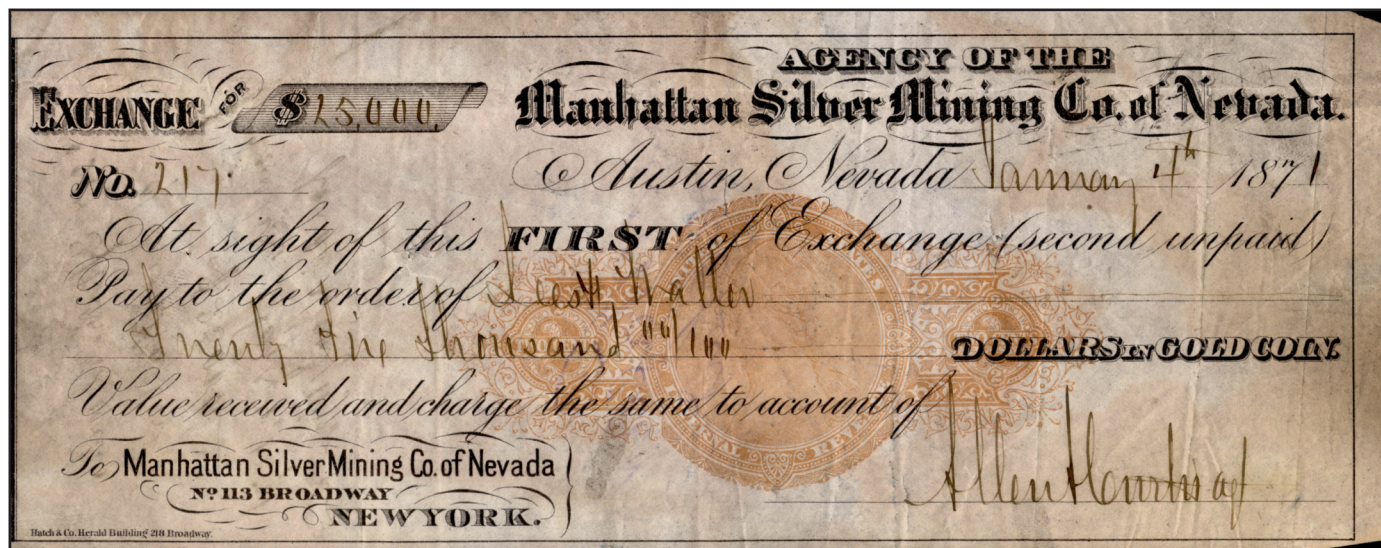 AGENCY OF THE
EXCHANGE FOR $25,000. Manhattan Silver Mining Co. of Nevada.
No. 217. Austin, Nevada January 4th 1871
At sight of this FIRST of Exchange (second unpaid)
Pay to the order of Waller
Twenty Five Thousand 00/100 DOLLARS IN GOLD COIN.
Value received and charge the same to account of
To Manhattan Silver Mining Co. of Nevada
No 113 BROADWAY
NEW YORK.
Allen A Curtis agt
Hatch & Co. Herald Building 218 Broadway.
INTERNAL REVENUE